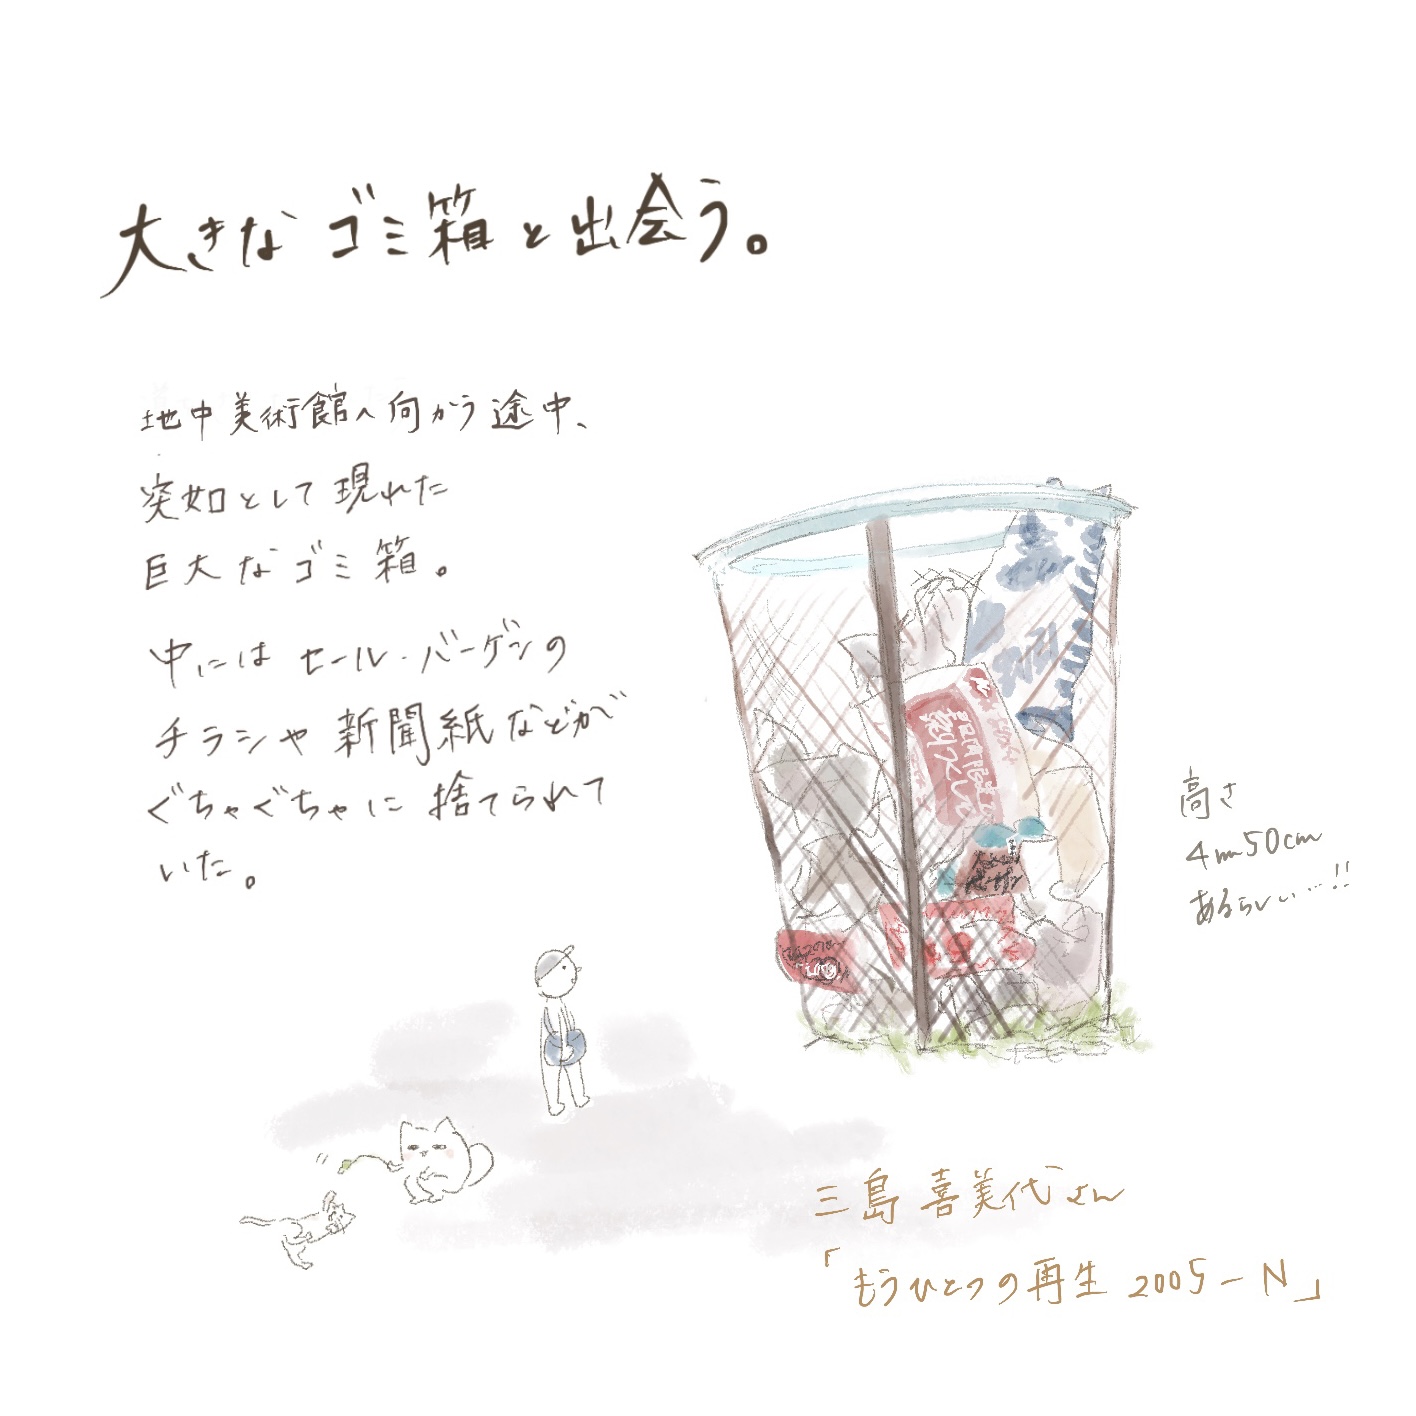 大きなゴミ箱と出会う。
地中美術館へ向かう途中、
突如として現れた
巨大なゴミ箱。
中にはセール・バーゲンの
チラシや新聞紙などが
ぐちゃぐちゃに捨てられて
いた。
高さ
4m50cm
あるらしい…!!
三島喜美代さん
「もうひとつの再生 2005-N」